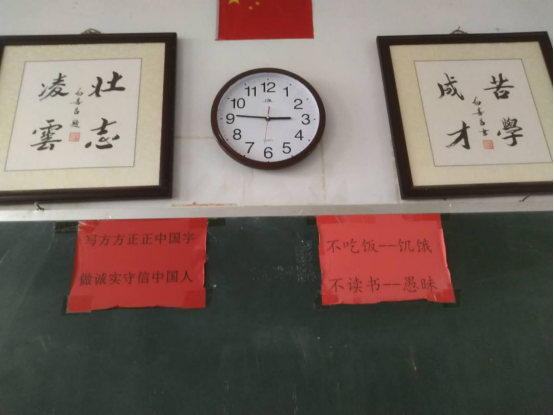 壮志
凌雲
12 1 2 3 4 5 6 7 8 9 10 11
苦學
成才
写方方正正中国字
做诚实守信中国人
不吃饭--饥饿
不读书--愚昧